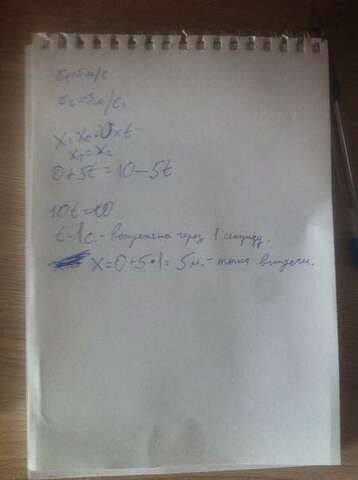 υ₁=5м/с
υ₂=5м/с
x=x₀+υxt
x₁=x₂
0+5t=10-5t
10t=10
t=1c.- встреча через 1 секунду.
x=0+5•1=5м.- точка встречи.